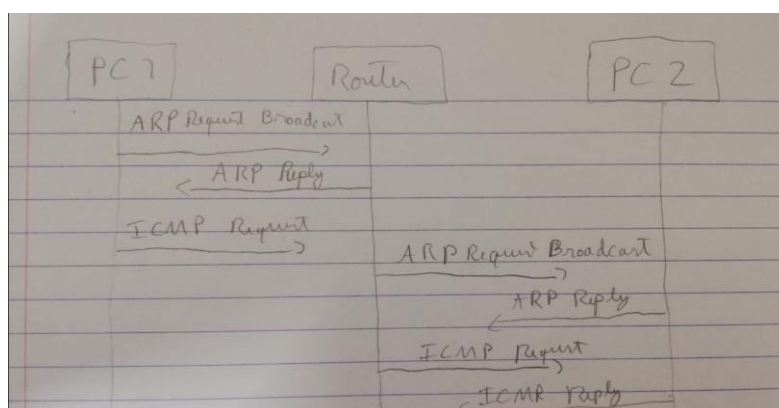 PC 1
Router
PC 2
ARP Request Broadcast
ARP Reply
ICMP Request
ARP Request Broadcast
ARP Reply
ICMP Request
ICMP Reply